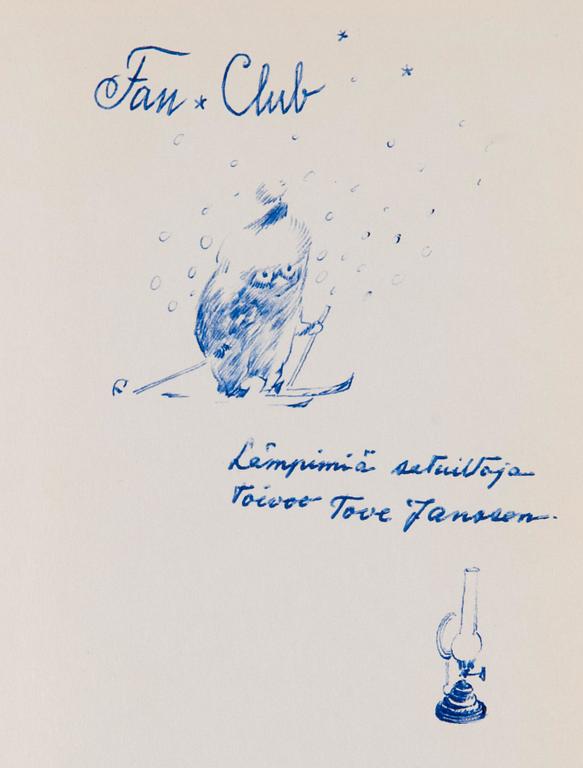 Fan * Club
Lämpimiä satuiltoja
toivoo Tove Jansson.